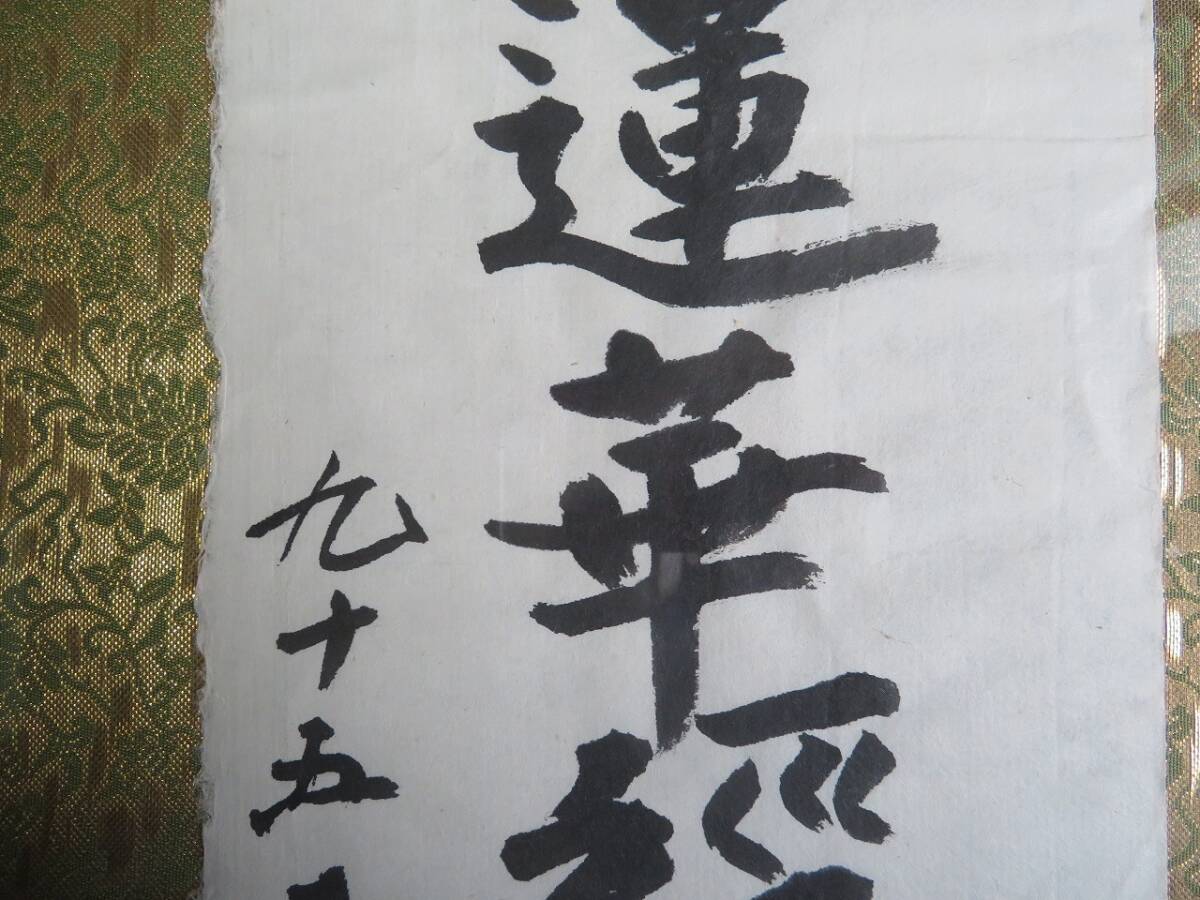 蓮華經
九十五